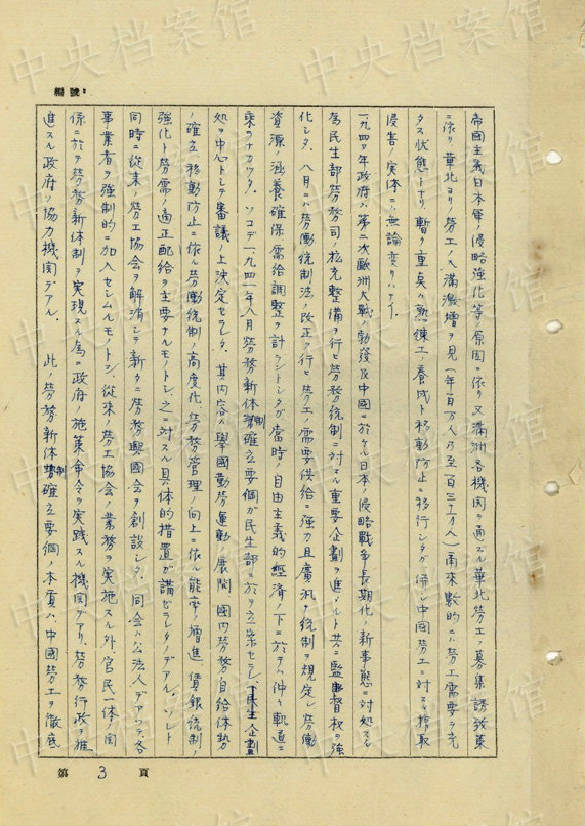 中央档案馆
編號:
帝国主義日本軍ノ侵略強化等ノ原因ニ依リ又満洲各機関ノ適スル華北労工ノ募集誘致策
ニ依リ華北ヨリノ労工ノ入満激増ヲ見(年百万人乃至一百三十万人)爾来数的ニハ労工需要ヲ充
タス状態トナリ暫ク重臭ハ熟練工ノ養成ト移動防止ニ移行シタガ併シ中國労工ニ対スル搾取
侵害ノ実体ニハ無論変リハナイ。
一九四〇年政府ハ第二次歐洲大戦ノ勃發及中國ニ於ケル日本ノ侵略戦争長期化ノ新事態ニ対処スル
為民生部労務司ノ拡充整備ヲ行ヒ労務統制ニ対スル重要企劃ヲ進メルト共ニ監督权ヲ強
化シタ、八月ニハ労働統制法ノ改正ヲ行ヒ労工ノ需要供給ニ強力且廣汎ナ統制ヲ規定シ労働
資源ノ涵養確保需給調整ヲ計ラントシタガ當時ノ自由主義的經済ノ下ニ於テハ仲々軌道ニ
乗ラナカッタ。ソコデ一九四一年八月労務新体制確立要綱ガ民生部ニ於テ立案セラレ、企畫
処ヲ中心トシテ審議ノ上決定セラレタ。其内容ハ擧國勤労運動ノ展開、國内労務自給体勢
ノ確立、移動防止ニ依ル労働統制ノ高度化、労務管理ノ向上ニ依ル能率増進、賃銀統制ノ
強化ト労需ノ適正配給ヲ主要ナルモノトシ、之ニ対スル具体的措置ガ講ゼラレタノデアル。ソレト
同時ニ從来ノ労工協会ヲ解消シテ新タニ労務興國会ヲ創設シタ。同会ハ公法人デアッテ、各
事業者ヲ強制的ニ加入セシムルモノトシ、從来ノ労工協会ノ業務ヲ実施スル外、官民一体ノ関
係ニ於テ労務新体制ヲ実現スル為ニ政府ノ施策命令ヲ実践スル機関デアリ、労務行政ヲ推
進スル政府ノ協力機関デアル。 此ノ労務新体制確立要綱ノ本質ハ中國労工ヲ徹底
第 3 頁